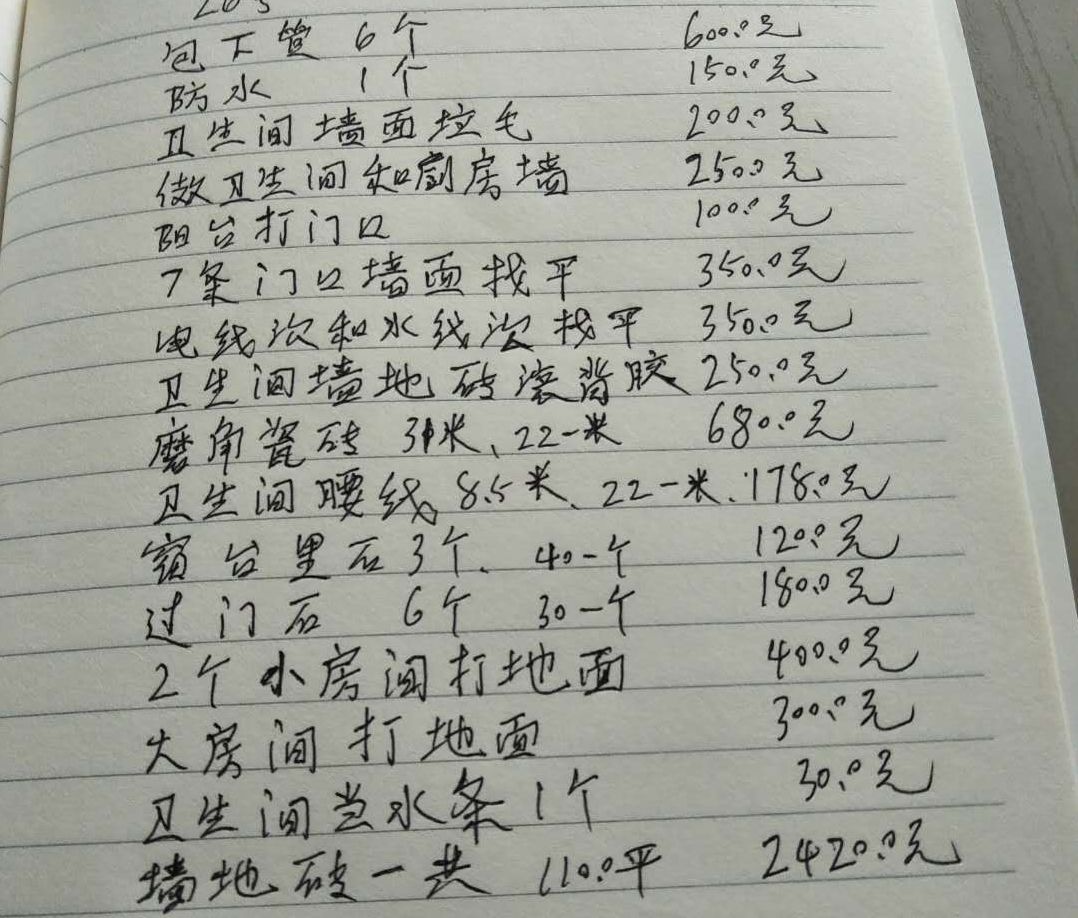 包下管 6个 600.0元
防水 1个 150.0元
卫生间墙面拉毛 200.0元
做卫生间和厨房墙 250.0元
阳台打门口 100.0元
7条门口墙面找平 350.0元
电线次和水线次找平 350.0元
卫生间墙地砖滚背胶 250.0元
磨角瓷砖 31米、22一米 680.0元
卫生间腰线 8.5米、22一米. 178.0元
窗台里石3个、40一个 120.0元
过门石 6个 30一个 180.0元
2个小房间打地面 400.0元
大房间打地面 300.0元
卫生间当水条1个 30.0元
墙地砖一共 110.0平 2420.0元